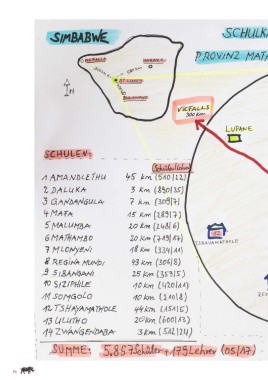 SIMBABWE
SCHULK
PROVINZ MATA
VICFALLS
300 KM
LUPANE
SCHULEN:
Schüler/Lehrer
1 AMANDLETHU 45 KM (510/22)
2 DALUKA 3 KM (890/35)
3 GANDANGULA 7 KM (309/7)
4 MAFA 15 KM (289/7)
5 MALUMBA 20 KM (248/6)
6 MATHAMBO 20 KM (719/17)
7 MLONYENI 18 KM (334/11)
8 REGINA MUNDI 43 KM (306/8)
9 SIBANGANI 25 KM (353/5)
10 SIZIPHILE 10 KM (420/11)
11 SOMGOLO 10 KM (210/8)
12 TSHAYAMATHOLE 44 KM (151/5)
13 ULUTHO 20 KM (600/13)
14 ZWANGENDABA 3 KM (512/24)
SUMME: 5.857 Schüler + 179 Lehrer (05/17)